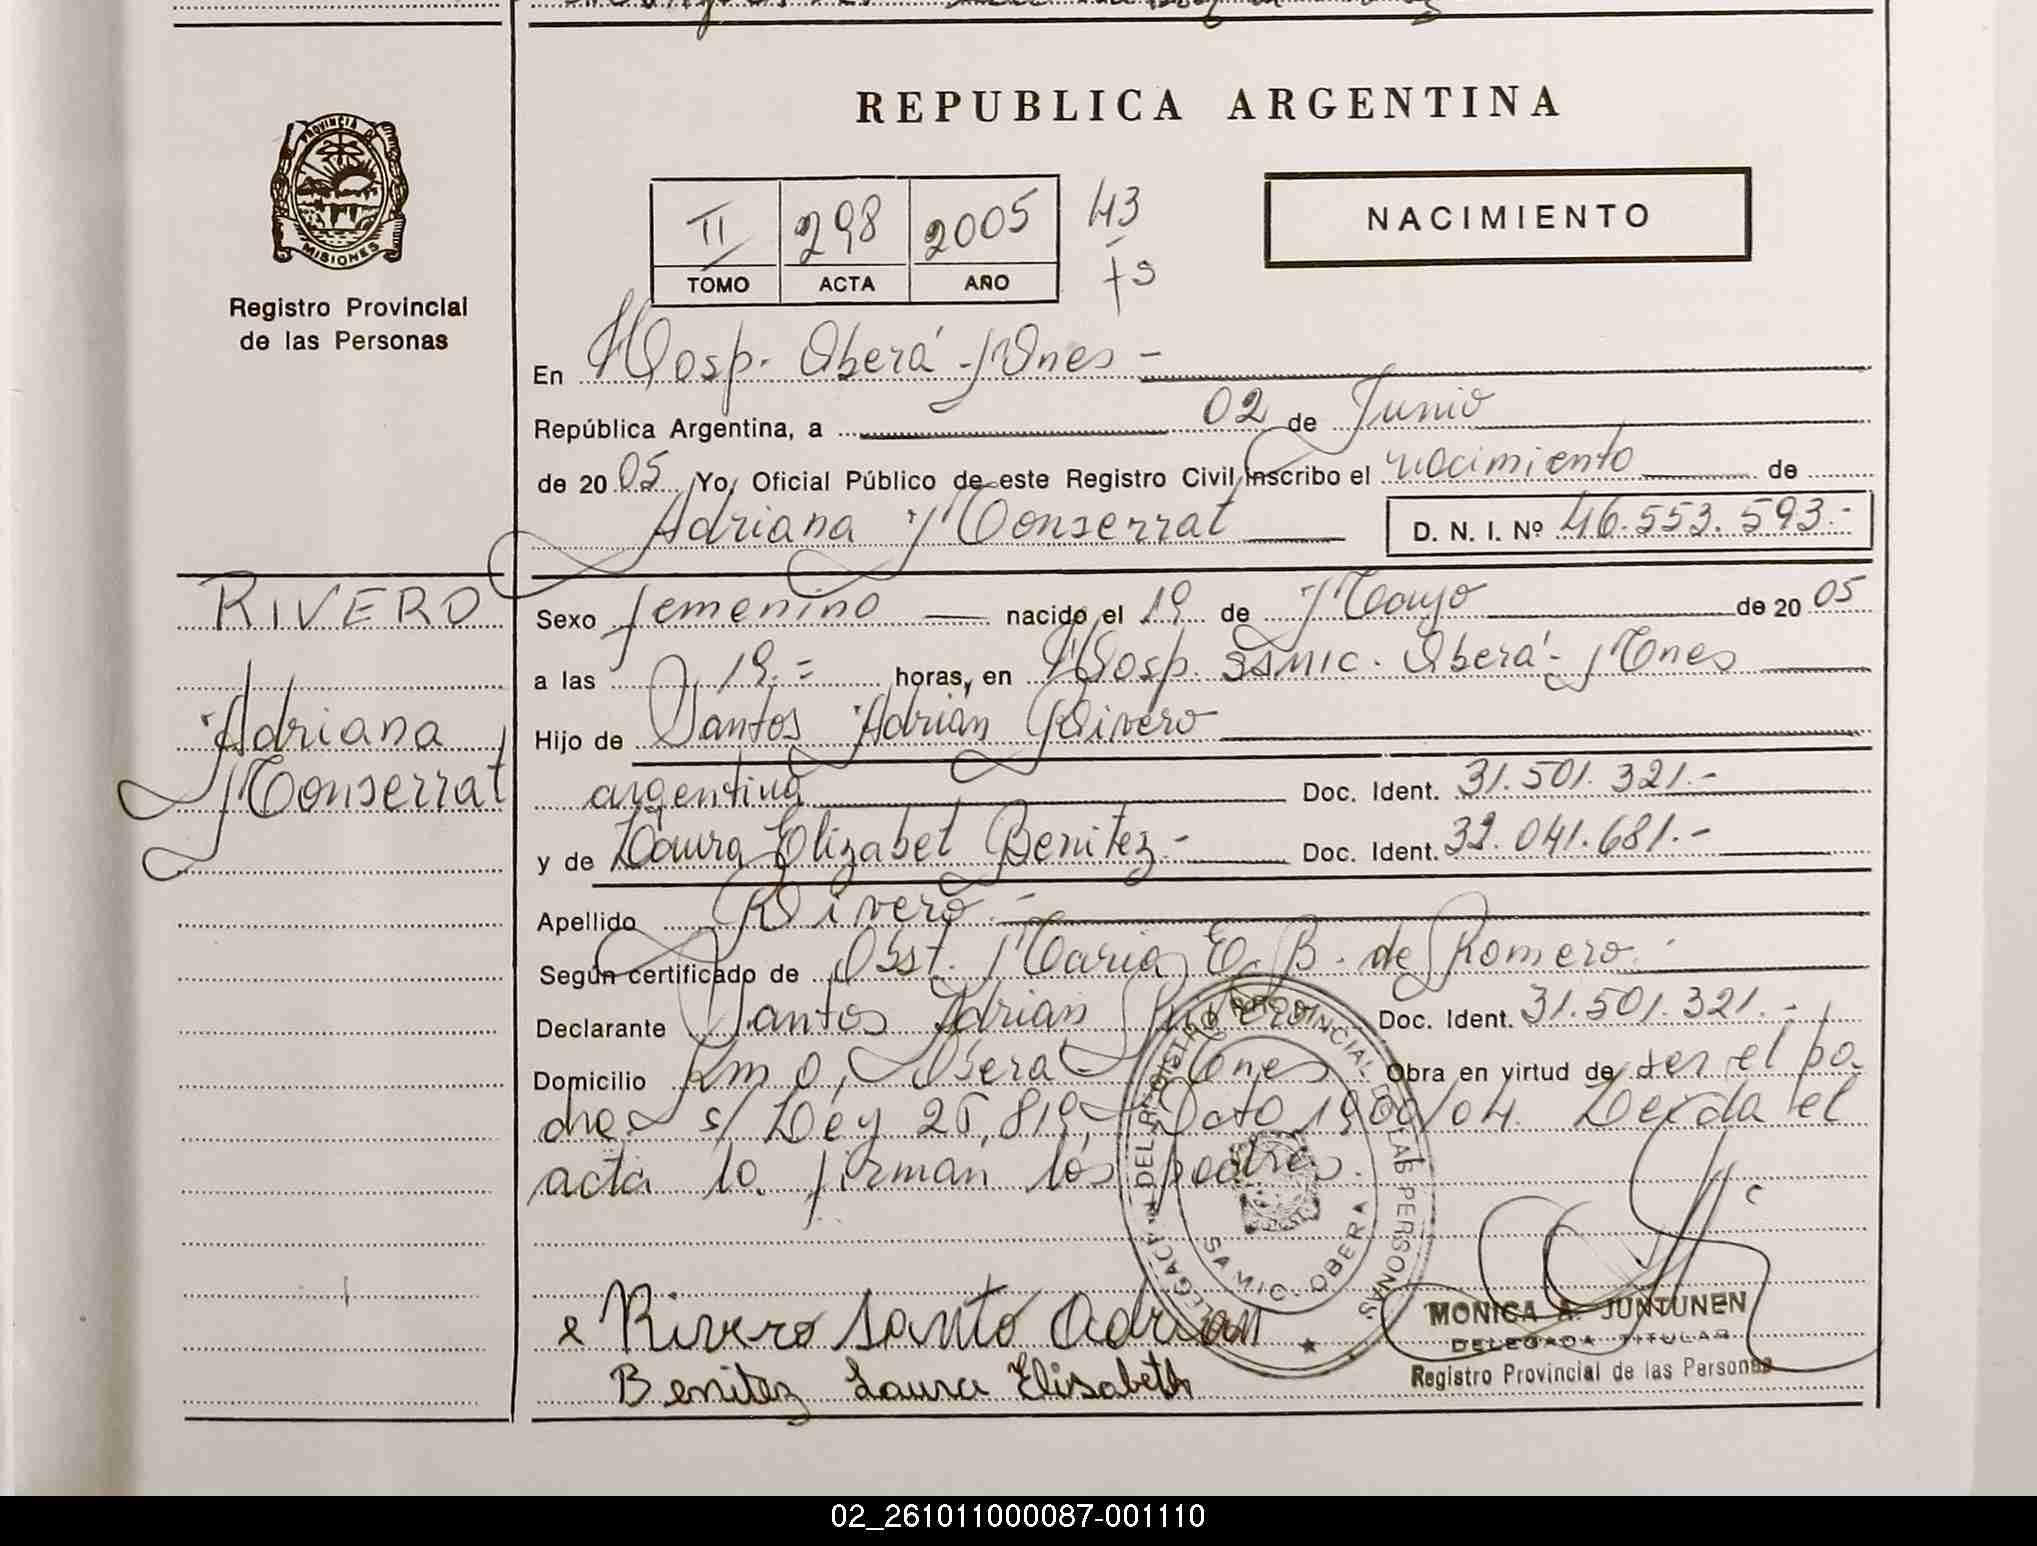 REPUBLICA ARGENTINA
PROVINCIA D
MISIONES
Registro Provincial
de las Personas
II 298 2005 43
TOMO ACTA AÑO
NACIMIENTO
En Hosp. Oberá - Mnes -
República Argentina, a 02 de Junio
de 20 05 Yo, Oficial Público de este Registro Civil, inscribo el nacimiento de
Adriana Monserrat D. N. I. Nº 46.553.593.-
RIVERO
Adriana
Monserrat
Sexo femenino nacido el 19 de Mayo de 20 05
a las 19.= horas, en Hosp. SAMIC. Oberá - Mnes
Hijo de Santos Adrian Rivero
argentina Doc. Ident. 31.501.321.-
y de Laura Elizabet Benitez - Doc. Ident. 32.041.681.-
Apellido Rivero.-
Según certificado de Obst. Maria E. B. de Romero.
Declarante Santos Adrian Rivero Doc. Ident. 31.501.321.-
Domicilio Km 0, Oberá Mnes Obra en virtud de ser el pa-
dre s/ Ley 25,819, Dcto 1900/04. Leida el
acta la firman los padres.
DELEGAC DEL REGISTRO PROVINCIAL DE LAS PERSONAS
SAMIC - OBERA
Rivero Santo Adrian
Benitez Laura Elisabeth
MONICA A. JUNTUNEN
DELEGADA TITULAR
Registro Provincial de las Personas
02_261011000087-001110